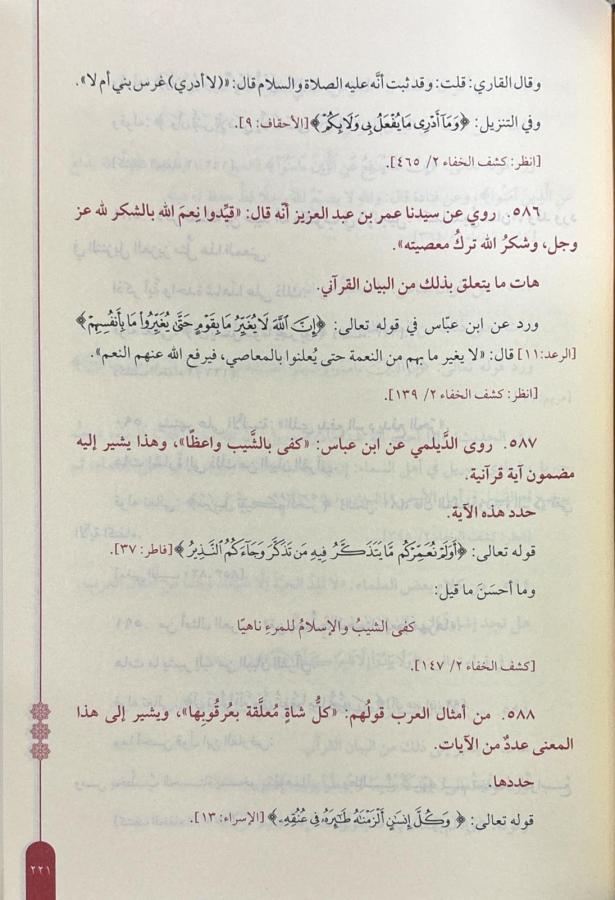 وقال القاري: قلت: وقد ثبت أنَّه عليه الصلاة والسلام قال: «(لا أدري) غرس بني أم لا».
وفي التنزيل: ﴿وَمَآ أَدْرِى مَا يُفْعَلُ بِى وَلَا بِكُمْ﴾ [الأحقاف: ٩].
[انظر: كشف الخفاء ٢/ ٤٦٥].
٥٨٦. روي عن سيدنا عمر بن عبد العزيز أنَّه قال: «قيِّدوا نِعمَ الله بالشكر لله عز
وجل، وشكرُ الله تركُ معصيته».
هات ما يتعلق بذلك من البيان القرآني.
ورد عن ابن عبّاس في قوله تعالى: ﴿إِنَّ ٱللَّهَ لَا يُغَيِّرُ مَا بِقَوْمٍ حَتَّىٰ يُغَيِّرُوا۟ مَا بِأَنفُسِهِمْ﴾
[الرعد: ١١] قال: «لا يغير ما بهم من النعمة حتى يُعلنوا بالمعاصي، فيرفع الله عنهم النعم».
[انظر: كشف الخفاء ٢/ ١٣٩].
٥٨٧. روى الدَّيلمي عن ابن عباس: «كفى بالشَّيب واعظًا»، وهذا يشير إليه
مضمون آية قرآنية.
حدد هذه الآية.
قوله تعالى: ﴿أَوَلَمْ نُعَمِّرْكُم مَّا يَتَذَكَّرُ فِيهِ مَن تَذَكَّرَ وَجَآءَكُمُ ٱلنَّذِيرُ﴾ [فاطر: ٣٧].
وما أحسَنَ ما قيل:
كفى الشيبُ والإسلامُ للمرءِ ناهيًا
[كشف الخفاء ٢/ ١٤٧].
٥٨٨. من أمثال العرب قولُهم: «كلُّ شاةٍ مُعلَّقة بعرقُوبها»، ويشير إلى هذا
المعنى عددٌ من الآيات.
حددها.
قوله تعالى: ﴿وَكُلَّ إِنسَٰنٍ أَلْزَمْنَٰهُ طَٰٓئِرَهُۥ فِى عُنُقِهِۦ﴾ [الإسراء: ١٣].
٢٢١